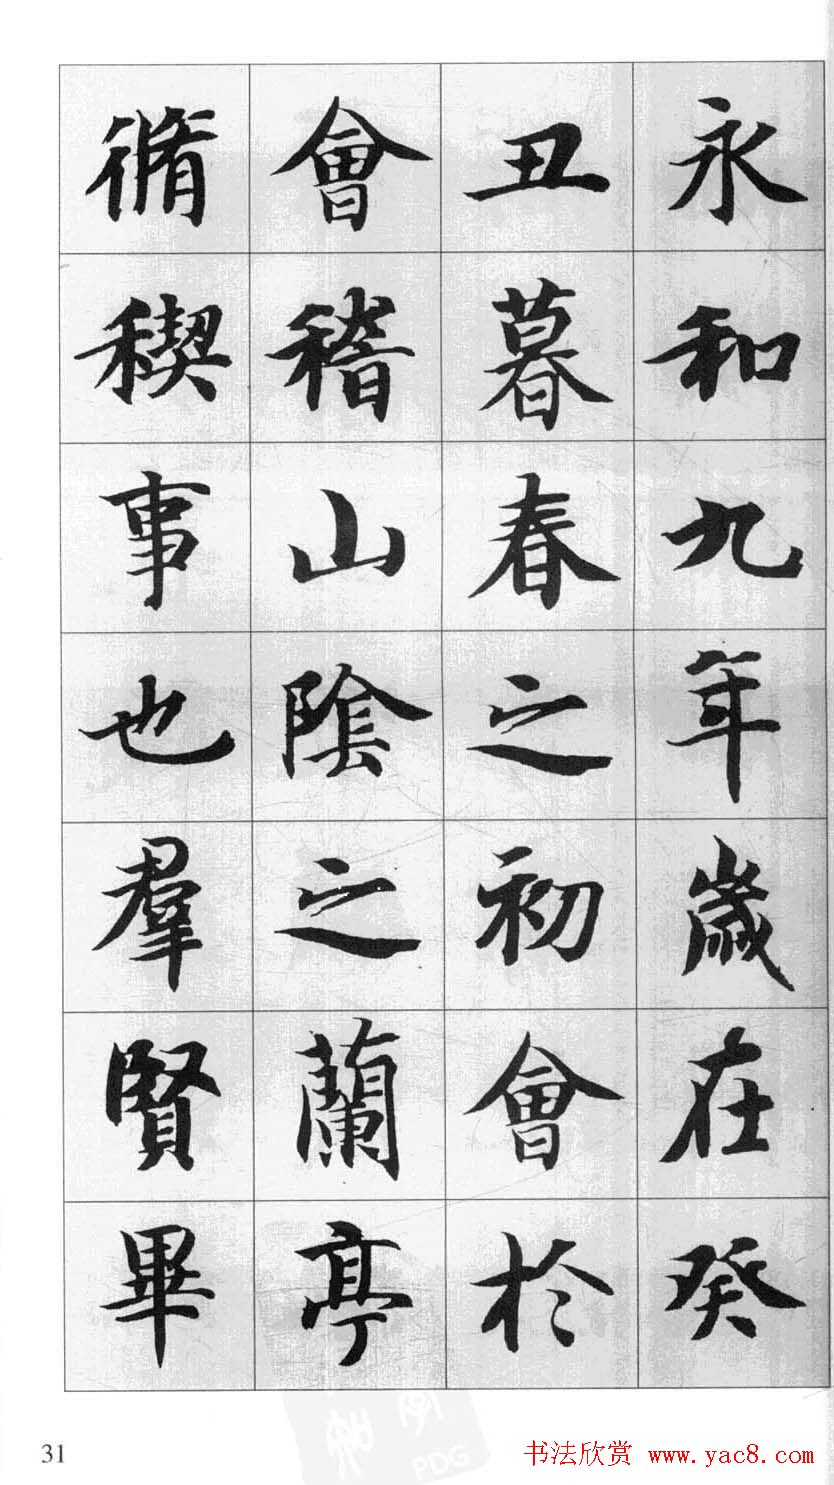 永和九年歲在癸
丑暮春之初會於
會稽山陰之蘭亭
脩稧事也羣賢畢
31
书法欣赏 www.yac8.com
PDG